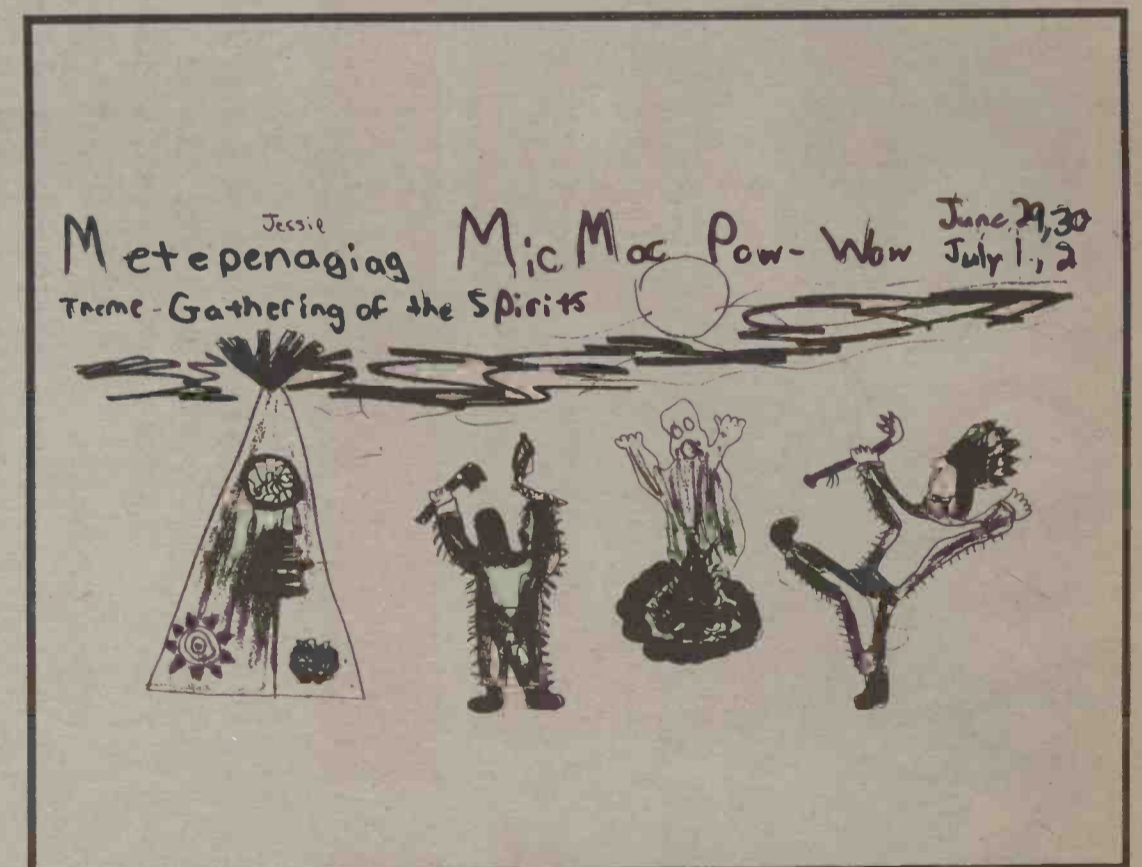 Jessie
Metepenagiag MicMac Pow-Wow June 29,30
July 1, 2
Theme - Gathering of the Spirits